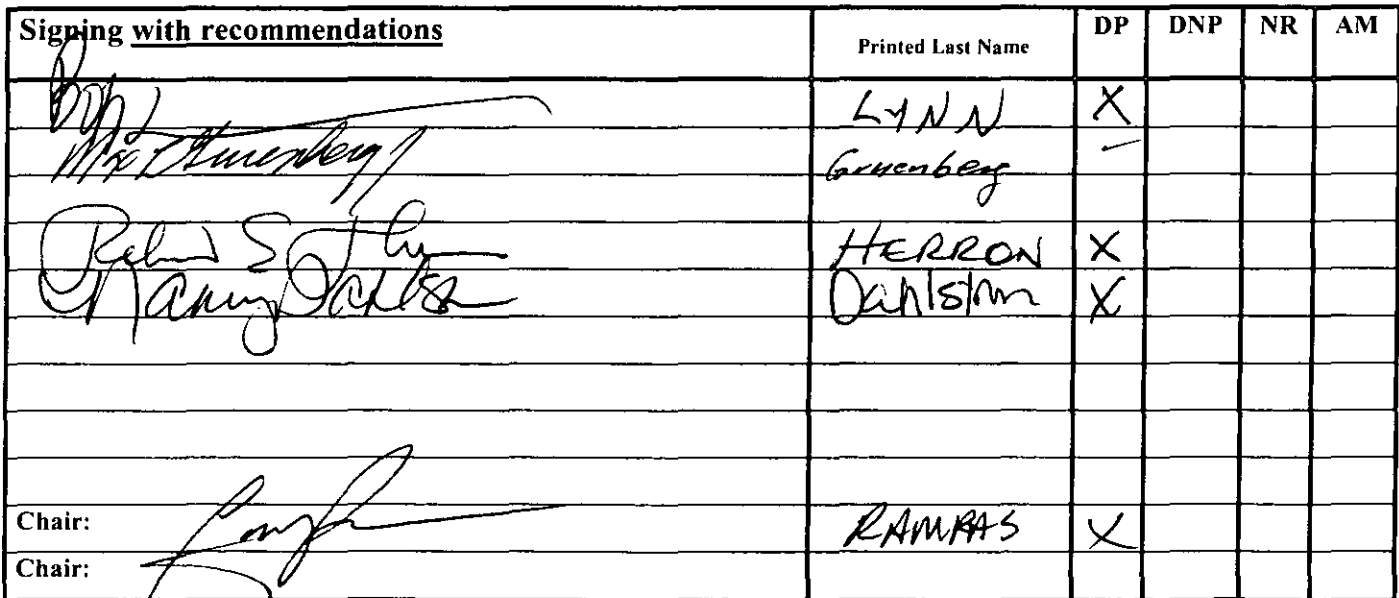 Signing with recommendations Printed Last Name DP DNP NR AM
LYNN X
Gruenberg
HERRON X
Nancy Dahlstrom X
Chair: RAMRAS X
Chair: